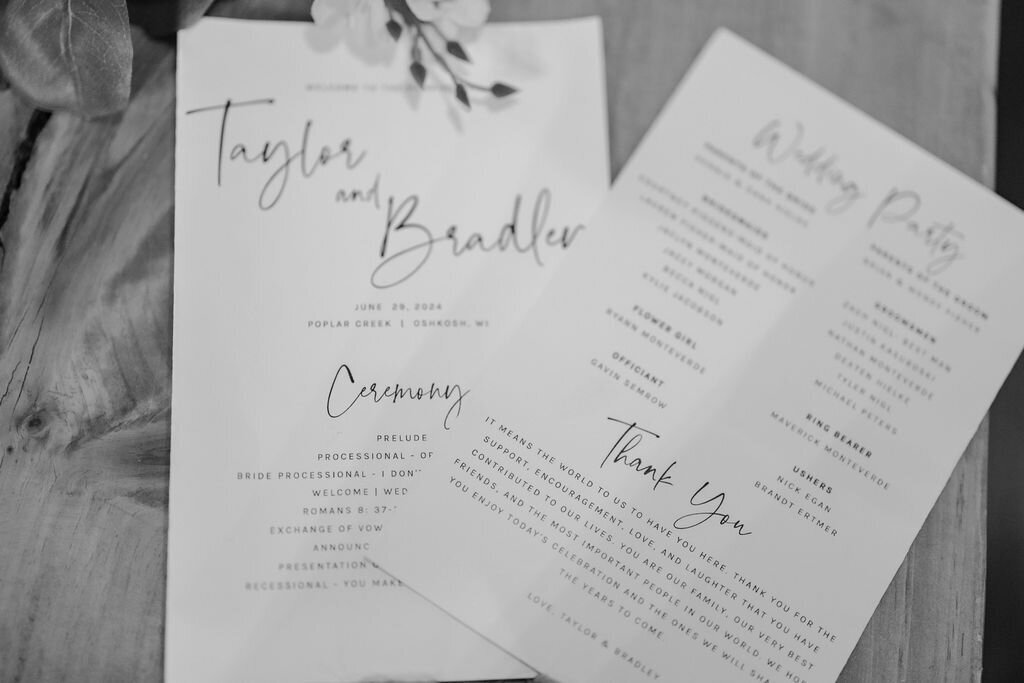 WELCOME TO THE
Taylor
and
Bradley
JUNE 29, 2024
POPLAR CREEK | OSHKOSH, WI
Ceremony
PRELUDE
PROCESSIONAL -
BRIDE PROCESSIONAL - I DON'T
WELCOME | WED
ROMANS 8: 37-
EXCHANGE OF VOW
ANNOUNC
PRESENTATION
RECESSIONAL - YOU MAKE
Wedding Party
PARENTS OF THE BRIDE
BRIDESMAIDS
JACEY MORGAN
BECCA NIGL
KYLIE JACOBSON
FLOWER GIRL
RYANN MONTEVERDE
OFFICIANT
GAVIN SEMROW
PARENTS OF THE GROOM
GROOMSMEN
ZACH NIGL - BEST MAN
JUSTIN
NATHAN MONTEVERDE
DEXTER HIELKE
TYLER NIGL
MICHAEL PETERS
RING BEARER
MAVERICK MONTEVERDE
USHERS
NICK EGAN
BRANDT ERTMER
Thank You
IT MEANS THE WORLD TO US TO HAVE YOU HERE. THANK YOU FOR THE
SUPPORT, ENCOURAGEMENT, LOVE, AND LAUGHTER THAT YOU HAVE
CONTRIBUTED TO OUR LIVES. YOU ARE OUR FAMILY, OUR VERY BEST
FRIENDS, AND THE MOST IMPORTANT PEOPLE IN OUR WORLD. WE HOP
YOU ENJOY TODAY'S CELEBRATION AND THE ONES WE WILL SHA
THE YEARS TO COME.
LOVE, TAYLOR & BRADLEY